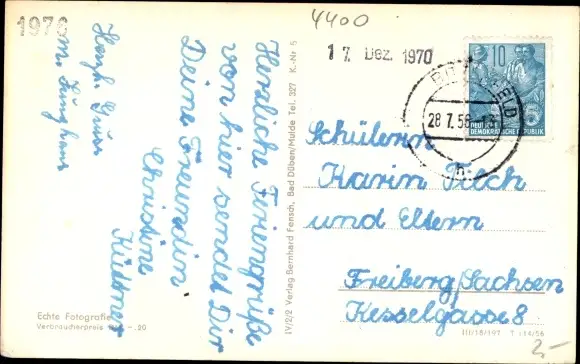 1970
4400
17. Dez. 1970
10
28.7.56
DEUTSCHE
DEMOKRATISCHE REPUBLIK
Herzliche Feriengrüße
von hier sendet Dir
Deine Freundin
Christine
Küttner
Herzl. Gruß
Schülerin
Karin Filch
und Eltern
Freiberg/Sachsen
Kesselgasse 8
IV/2/2 Verlag Bernhard Fensch, Bad Düben/Mulde Tel. 327 K.-Nr 5
Echte Fotografie
Verbraucherpreis -.20
III/18/197 T 14/56
2-